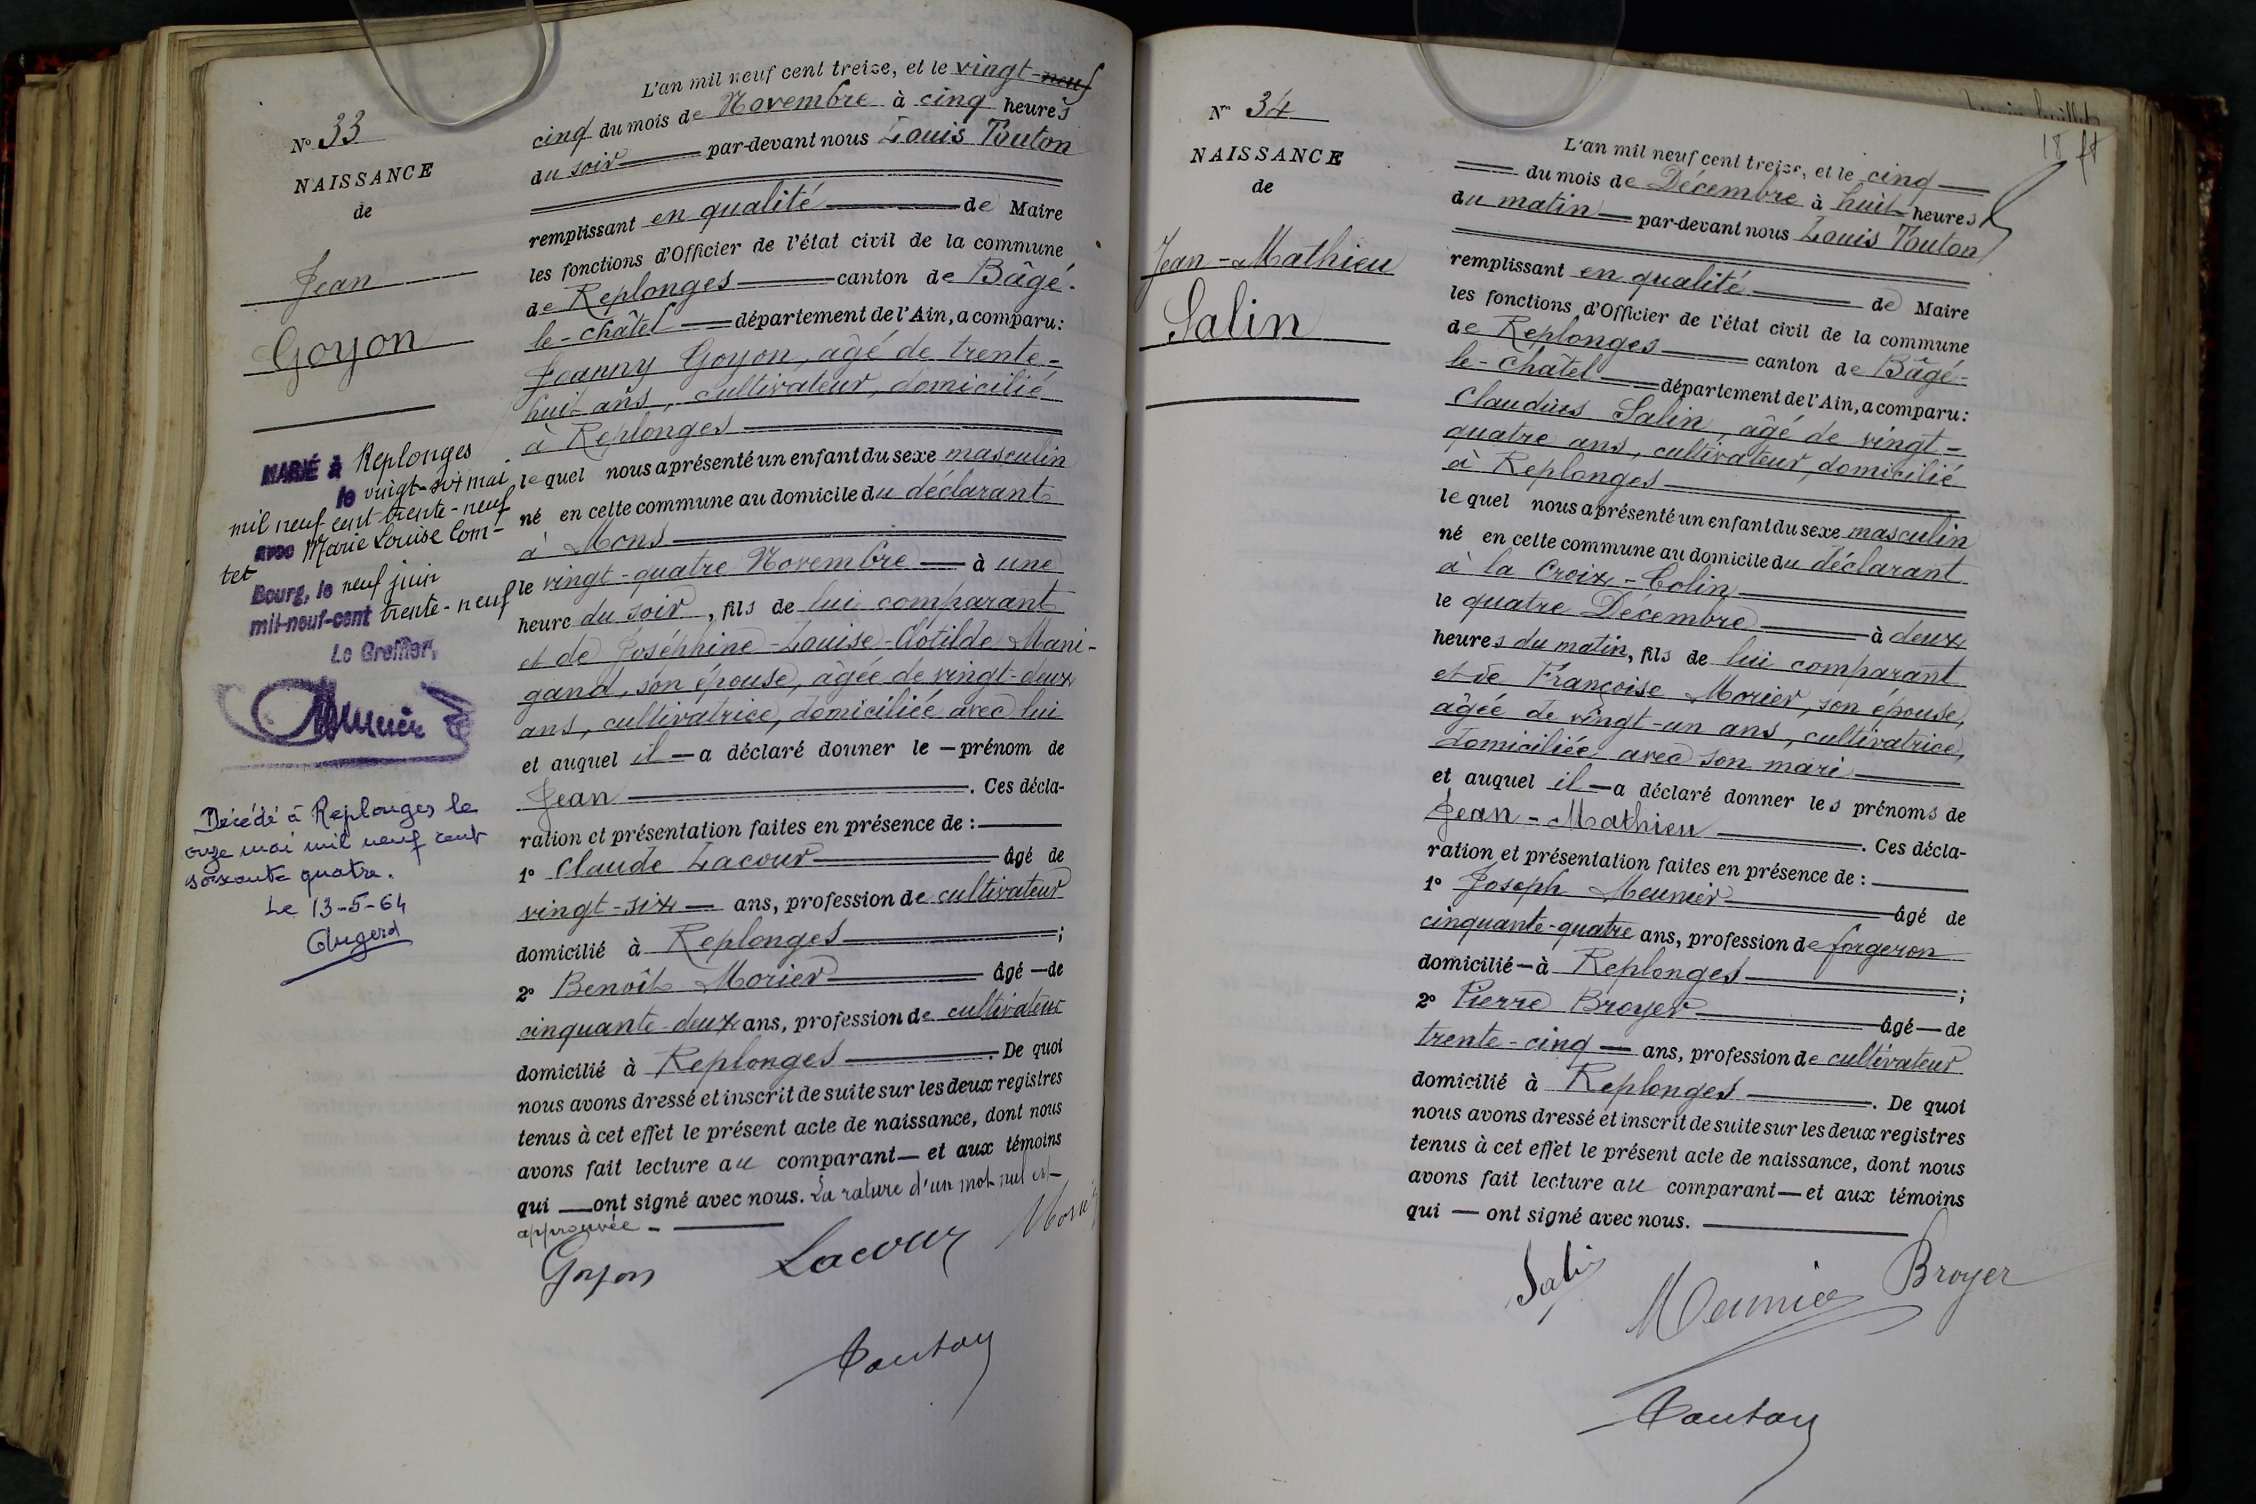 N° 33
NAISSANCE
de
Jean
Goyon
MARIÉ à Replonges
le vingt-six mai
mil neuf cent trente-neuf
avec Marie Louise Com-
tet
Bourg, le neuf juin
mil-neuf-cent trente-neuf
Le Greffier,
Décédé à Replonges le
onze mai mil neuf cent
soixante quatre.
Le 13-5-64
Augerd
L'an mil neuf cent treize, et le vingt-neuf
cinq du mois de Novembre à cinq heures
du soir par-devant nous Louis Touton
remplissant en qualité de Maire
les fonctions d'Officier de l'état civil de la commune
de Replonges canton de Bâgé-
le-châtel département de l'Ain, a comparu:
Joanny Goyon, âgé de trente-
huit ans, cultivateur, domicilié
à Replonges
lequel nous a présenté un enfant du sexe masculin
né en cette commune au domicile du déclarant
à Mons
le vingt-quatre Novembre à une
heure du soir, fils de lui comparant
et de Joséphine-Louise-Clotilde Mani-
gand, son épouse, âgée de vingt-deux
ans, cultivatrice, domiciliée avec lui
et auquel il a déclaré donner le prénom de
Jean . Ces décla-
ration et présentation faites en présence de :
1° Claude Lacour âgé de
vingt-six ans, profession de cultivateur
domicilié à Replonges ;
2° Benoît Morier âgé de
cinquante-deux ans, profession de cultivateur
domicilié à Replonges . De quoi
nous avons dressé et inscrit de suite sur les deux registres
tenus à cet effet le présent acte de naissance, dont nous
avons fait lecture au comparant et aux témoins
qui ont signé avec nous. La rature d'un mot nul est
approuvée -
Goyon Lacour
Touton
18
N° 34
NAISSANCE
de
Jean-Mathieu
Salin
L'an mil neuf cent treize, et le cinq
du mois de Décembre à huit heures
du matin par-devant nous Louis Touton
remplissant en qualité de Maire
les fonctions d'Officier de l'état civil de la commune
de Replonges canton de Bâgé-
le-châtel département de l'Ain, a comparu:
Claudius Salin, âgé de vingt-
quatre ans, cultivateur, domicilié
à Replonges
lequel nous a présenté un enfant du sexe masculin
né en cette commune au domicile du déclarant
à la Croix-Colin
le quatre Décembre à deux
heures du matin, fils de lui comparant
et de Françoise Morier, son épouse,
âgée de vingt-un ans, cultivatrice,
domiciliée avec son mari
et auquel il a déclaré donner les prénoms de
Jean-Mathieu . Ces décla-
ration et présentation faites en présence de :
1° Joseph Meunier âgé de
cinquante-quatre ans, profession de forgeron
domicilié à Replonges ;
2° Pierre Broyer âgé de
trente-cinq ans, profession de cultivateur
domicilié à Replonges . De quoi
nous avons dressé et inscrit de suite sur les deux registres
tenus à cet effet le présent acte de naissance, dont nous
avons fait lecture au comparant et aux témoins
qui ont signé avec nous.
Salin Meunier Broyer
Touton